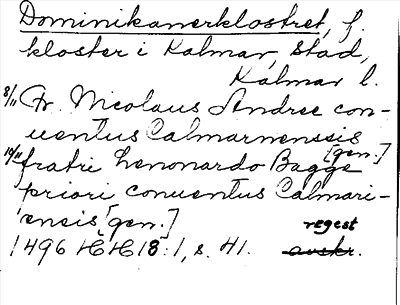 Dominikanerklostret, f.
kloster i Kalmar, stad,
Kalmar l.
8/11 Fr. Nicolaus Andree con-
uentus Calmarnenssis
[gen.]
10/11 fratri Lenonardo Bagge
priori conuentus Calmari-
ensis [gen.]
regest
1496 HH 18:1, s. 41. avskr.